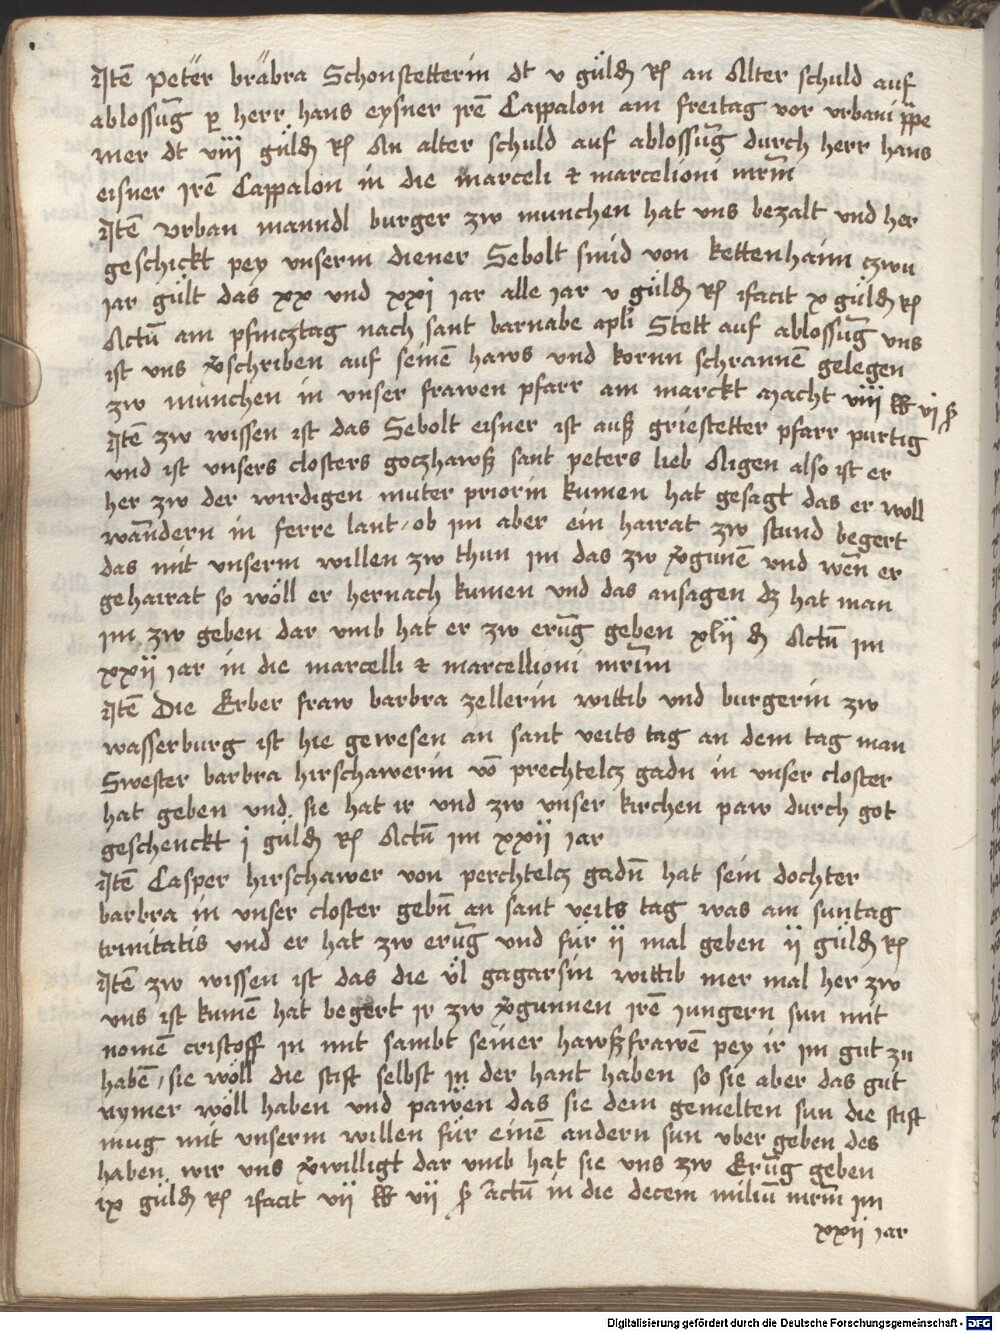 Itē Petër bräbra Schonstetterin dt v guldn Rh an Alter schuld auf
ablossūg p herr hans eysner irē Cappalon am freitag vor vrbani ppe
mer dt viii guldn Rh An alter schuld auf ablossūg durch herr hans
eisner irē Cappalon in die marceli et marcelioni mrm
Itē vrban manndl burger zw munchen hat vns bezalt vnd her
geschickt pey vnserm diener Sebolt smid von kettenhaim czwu
iar gült das xx vnd xxi iar alle iar v guldn Rh ifacit x guldn Rh
Actū am pfincztag nach sant barnabe apli Stett auf ablossūg vns
ist vns vschriben auf seinē haws vnd kornn schrannē gelegen
zw munchen in vnser frawen pfarr am marckt macht viii lb vi ß
Itē zw wissen ist das Sebolt eisner ist auß griestetter pfarr purtig
vnd ist vnsers closters goczhawß sant peters lieb Aigen also ist er
her zw der wirdigen muter priorin kumen hat gesagt das er woll
wandern in ferre lant / ob im aber ein hairat zw stund begert
das mit vnserm willen zw thun im das zw vgunē vnd wen er
gehairat so wöll er hernach kumen vnd das ansagen dz hat man
im zw geben dar vmb hat er zw erūg geben xlii dn Actū im
xxii iar in die marcelli et marcellioni mrm
Itē Die Erber fraw barbra zellerin wittib vnd burgerin zw
wasserburg ist hie gewesen an sant veits tag an dem tag man
Swester barbra hirschawerin vō prechtelcz gadn in vnser closter
hat geben vnd sie hat ir vnd zw vnser kirchen paw durch got
geschenckt i guldn Rh Actū im xxii iar
Itē Casper hirschawer von perchtelcz gadn hat sein dochter
barbra in vnser closter gebn an sant veits tag was am suntag
trinitatis vnd er hat zw erūg vnd für ii mal geben ii guldn Rh
Itē zw wissen ist das die vl gagarsin wittib mer mal her zw
vns ist kumē hat begert ir zw vgunnen irē iungern sun mit
nomē cristoff in mit sambt seiner hawßfrawē pey ir im gut zu
habē / sie wöll die stift selbst in der hant haben so sie aber das gut
nymer wöll haben vnd pawen das sie dem gemelten sun die stift
mug mit vnserm willen für einē andern sun vber geben des
haben wir vns vwilligt dar vmb hat sie vns zw Erūg geben
ix guldn Rh ifacit vii lb vii ß actū in die decem miliū mrm im
xxii iar
Digitalisierung gefördert durch die Deutsche Forschungsgemeinschaft - DFG